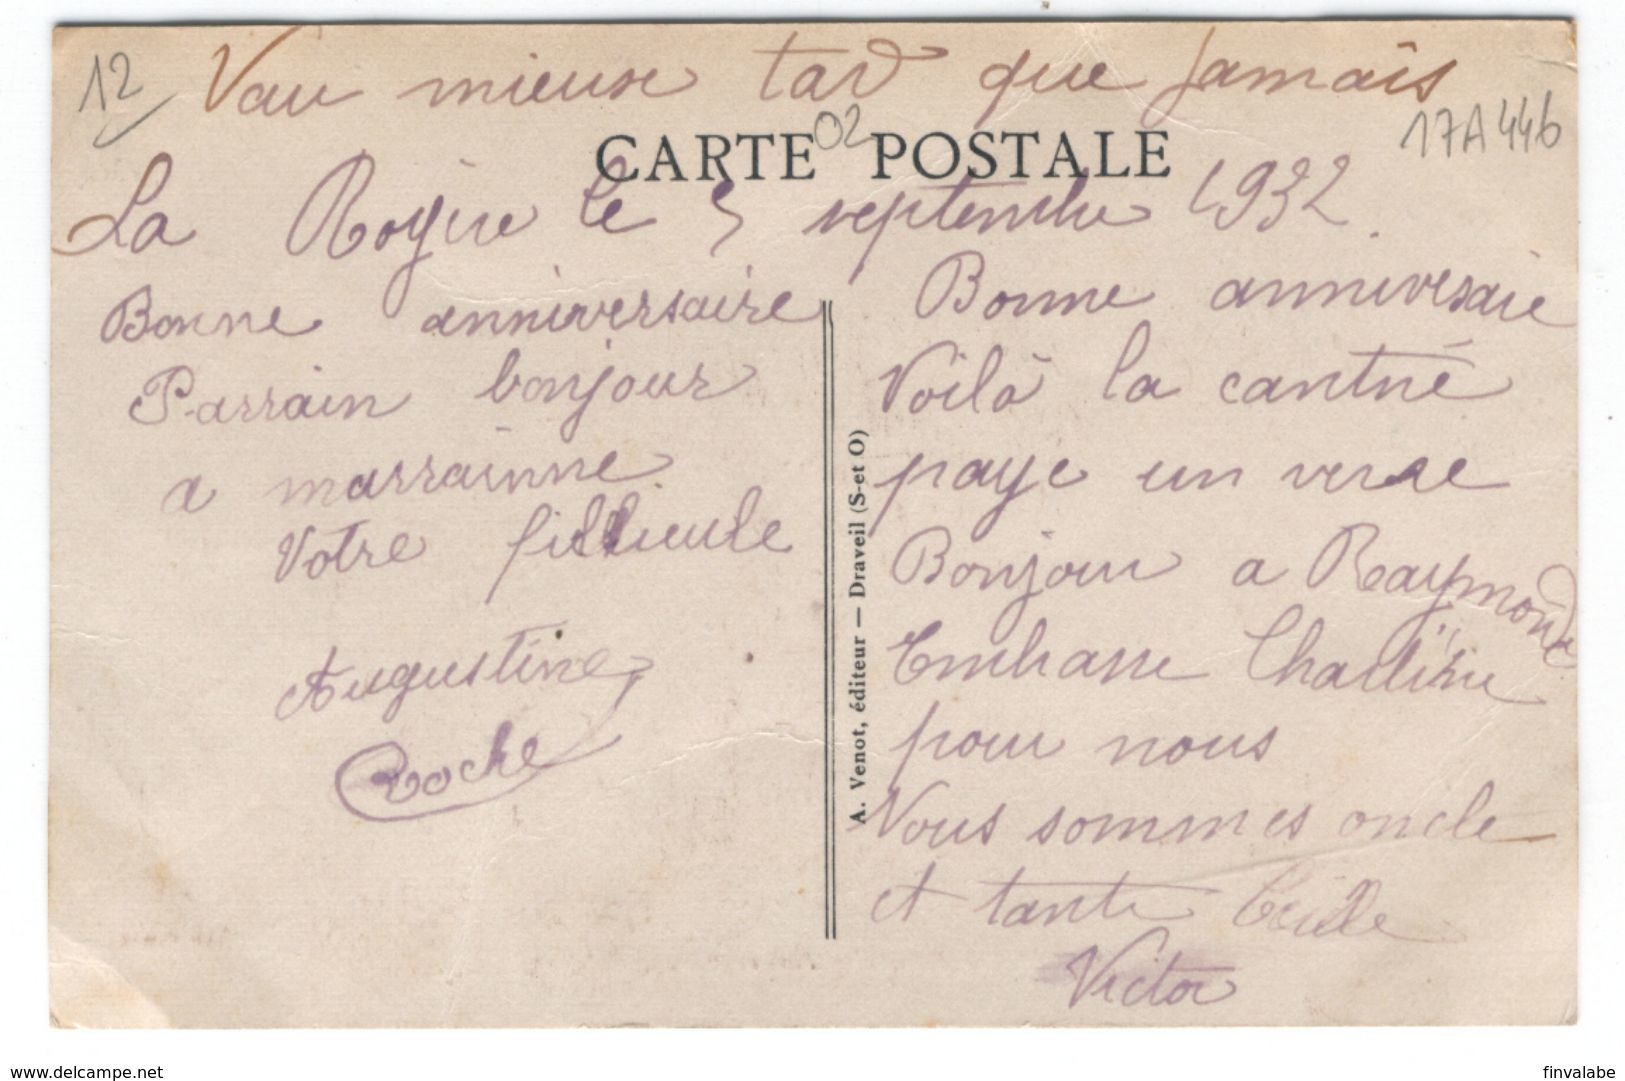 12 Vau mieux tard que Jamais
17A446
02
CARTE POSTALE
La Rogère le 5 septembre 1932.
Bonne anniversaire
Parrain bonjour
a marrainne.
Votre fillieule
Augustine
Roche
A. Venot, éditeur — Draveil (S-et O)
Bonne anniversaie
Voilà la
paye un verre
Bonjour a Raymonde
Embrasse
pour nous
Nous sommes oncle
et tante Cécille
Victor
www.delcampe.net
finvalabe